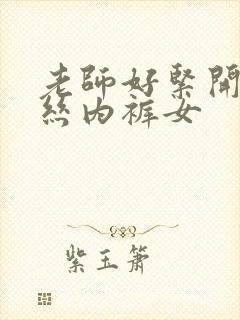 老師好緊開
絲内褲女
紫玉簫